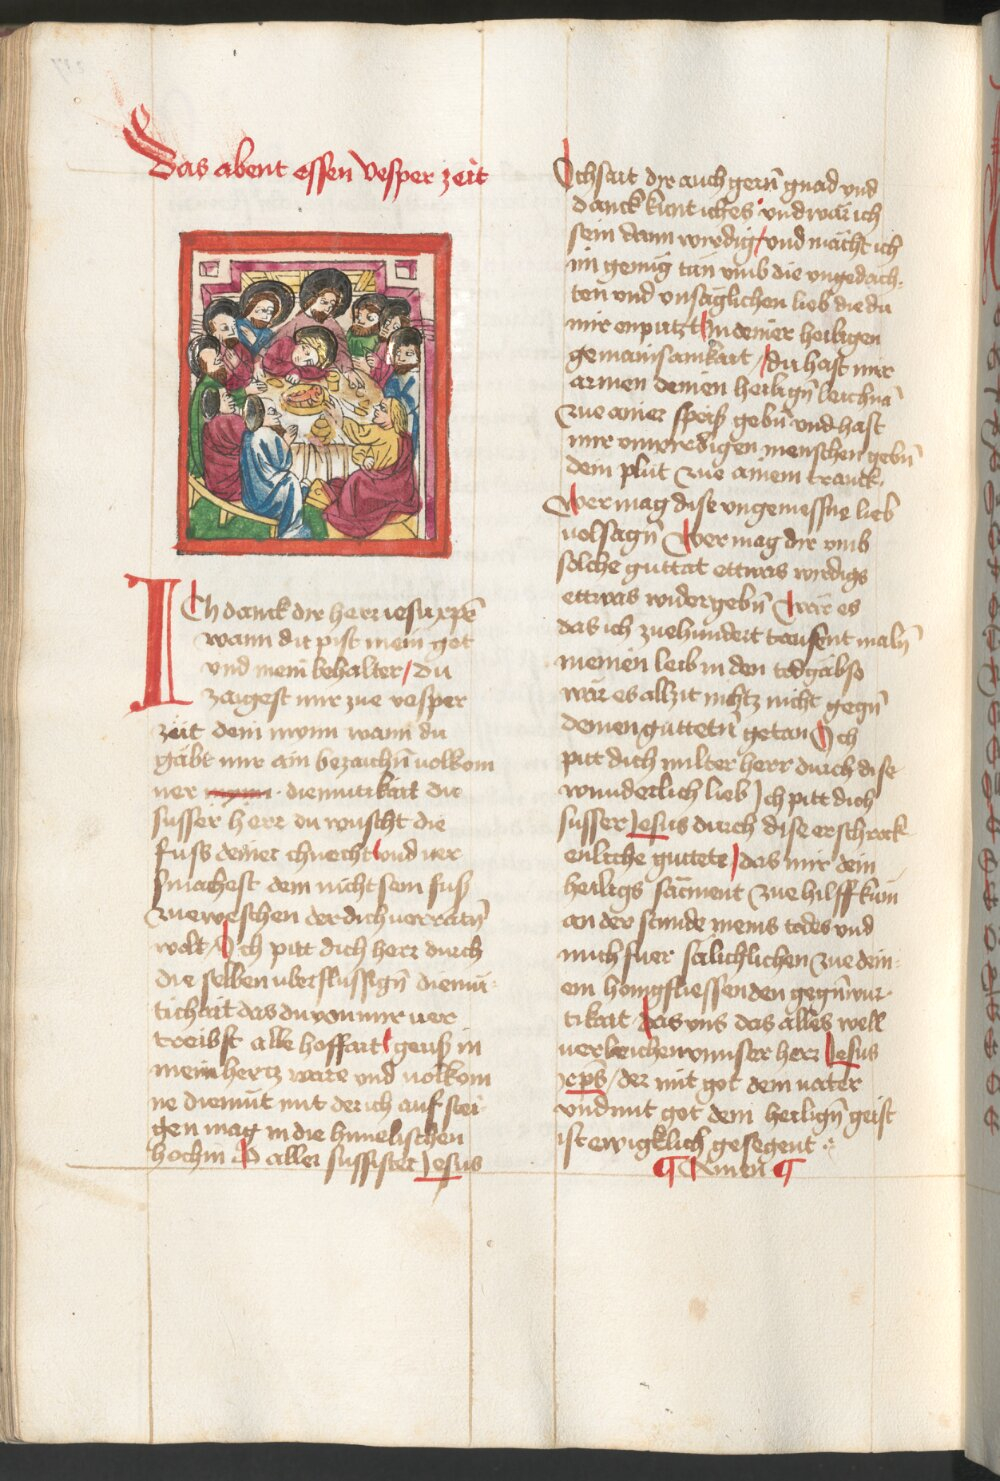 Das abent essen Vesper zeit
ICh danck dir herr iesu xpē
wann du pist mein got
vnd mein behalter / du
zaigest mir zue vesper
zeit dein mynn wann du
gäbt mir ain bezaichn̄ volkom
ner diemutikait du
susser herr du wuscht die
fuss deiner chnecht vnd ver
smachest dem nicht sein fuß
zue weschen der dich verratn̄
wolt / Ich pitt dich herr durch
die selben vberflussign̄ diemu-
tichait das du von mir ver
treibst alle hoffart / geuß in
mein hertz ware vnd volkom
ne diemut mit der ich auf stei-
gen mag in die himelischen
hochin O aller sussister Jesus
Ich sait dir auch gern̄ gnad vnd
danck kunt ich es vnd wär ich
sein dann wirdig / vnd mächt ich
im genug tun vmb die vngedäch-
ten vnd vnsäglichen lieb die du
mir enputzt In deiner heiligen
gemainsamkait / du hast mir
armen deinen heilign̄ leichnā
zue ainer speiß gebn̄ vnd hast
mir vnwirdigen menschen gebn̄
dein plut zue ainem tranck.
Wer mag dise vngemessne lieb
volsagn̄ Wer mag dir vmb
solche guttat ettwas wirdigs
ettwas widergebn̄ Wär es
das ich zue hundert tausent maln̄
meinen leib in den tod gäb so
wär es allzit nichtz nicht gegn̄
deinen guttetn̄ getan Ich
pitt dich milter herr durch dise
wunderlich lieb Ich pitt dich
susser Jesus durch dise erschrock
enliche guttete / das mir dein
heiligs sacment zue hilff kum
an der stunde meins todes vnd
mich fuer sälichlichen zue dein-
em honigfliessenden gegn̄wur-
tikait das vns das alles well
verleichen vnnser herr Jesus
xp̄s / der mit got dem vater
vnd mit got dem heilign̄ geist
ist ewigklich gesegent
¶ Amen ¶